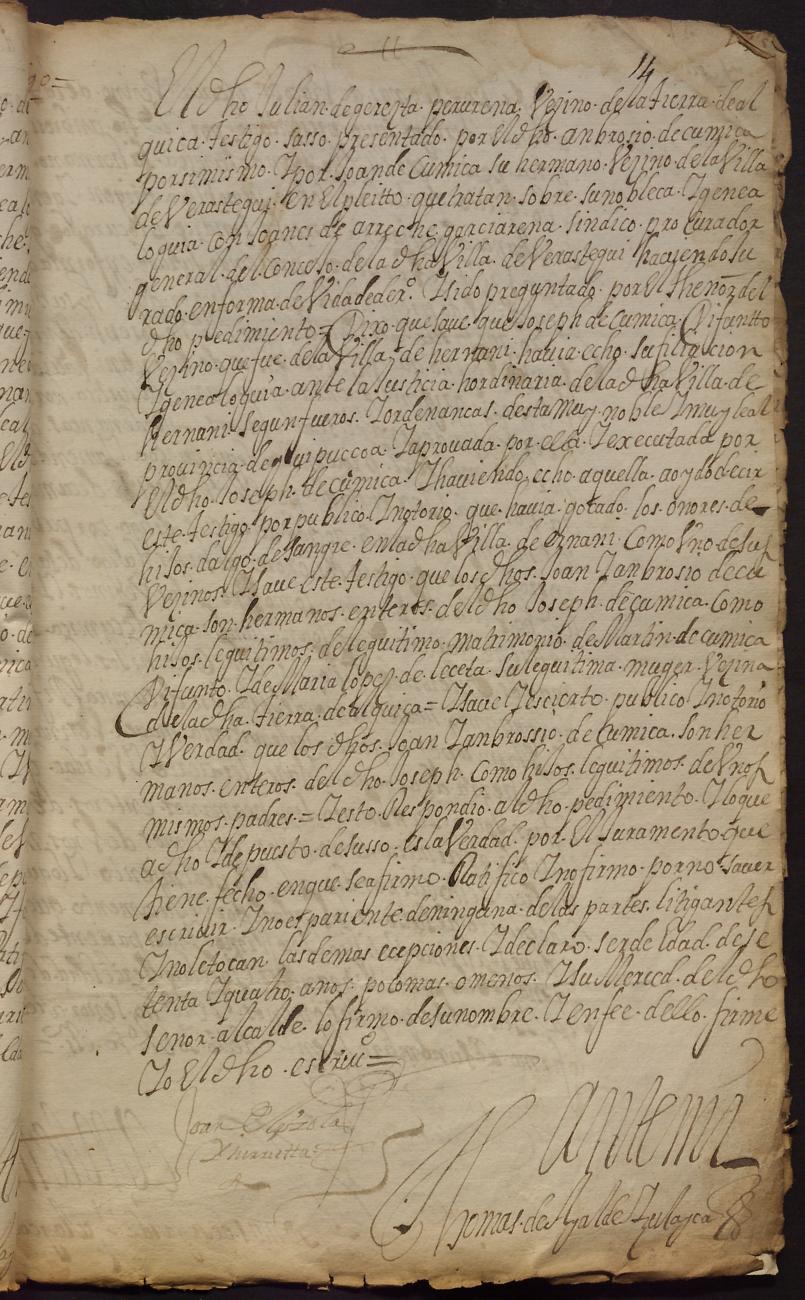 14
El dho Julian de goroeta perurena Vezino de la tierra de al
quiça testigo susso presentado por el dho anbrosio de cumica
por simismo Y por Joan de Cumica su hermano Vezino de la Villa
de Verastegui en El pleitto que tratan sobre su nobleca Y genea
loguia con Joanes de arreche garciarena sindico procurador
general del conceso de la dha Villa de Verastegui haviendo Ju
rado en forma de Vida de derº Y sido preguntado por El thenor del
dho pedimiento = Dixo que save que Joseph de Cumica Difuntto
Vezino que fue de la Villa de hernani havia echo su filiacion
Y genealoguia ante la Justicia hordinaria de la dha Villa de
hernani segun fueros Y ordenancas desta Muy noble Y muy leal
provincia de guipuccoa Y aprovada por ella Y executada por
El dho Joseph de cumica Y haviendo echo aquella a oydo decir
este testigo por publico Y notorio que havia gocado los onores de
hijos dalgo de sangre en la dha Villa de ernani Como Vno de sus
Vezinos Y save este testigo que los dhos Joan Y anbrosio de cu
mica son hermanos enteros del dho Joseph de cumica como
hijos leguitimos de leguitimo matrimonio de Martin de cumica
Difunto Y de Maria lopez de leceta su leguitima muger Vezina
de la dha tierra de alquiça = Y save Y es cierto publico Y notorio
Y Verdad que los dhos Joan Y anbrossio de Cumica son her
manos enteros del dho Joseph Como hijos leguitimos de Vnos
mismos padres = Y esto Respondio al dho pedimiento Y lo que
a dho Y depuesto de susso es la Verdad por El Juramento que
tiene fecho en que se afirmo Ratifico Y no firmo por no saver
escrivir Y no es pariente de ninguna de las partes litigantes
Y no le tocan las demas ecepciones Y declaro ser de Edad de se
tenta Y quatro anos poco mas o menos Y su Merced del dho
senor alcalde lo firmo de su nombre Y en fee dello firme
Yo El dho escriuº =
Joan
Ante mi
Thomas de Yalde Zulayca